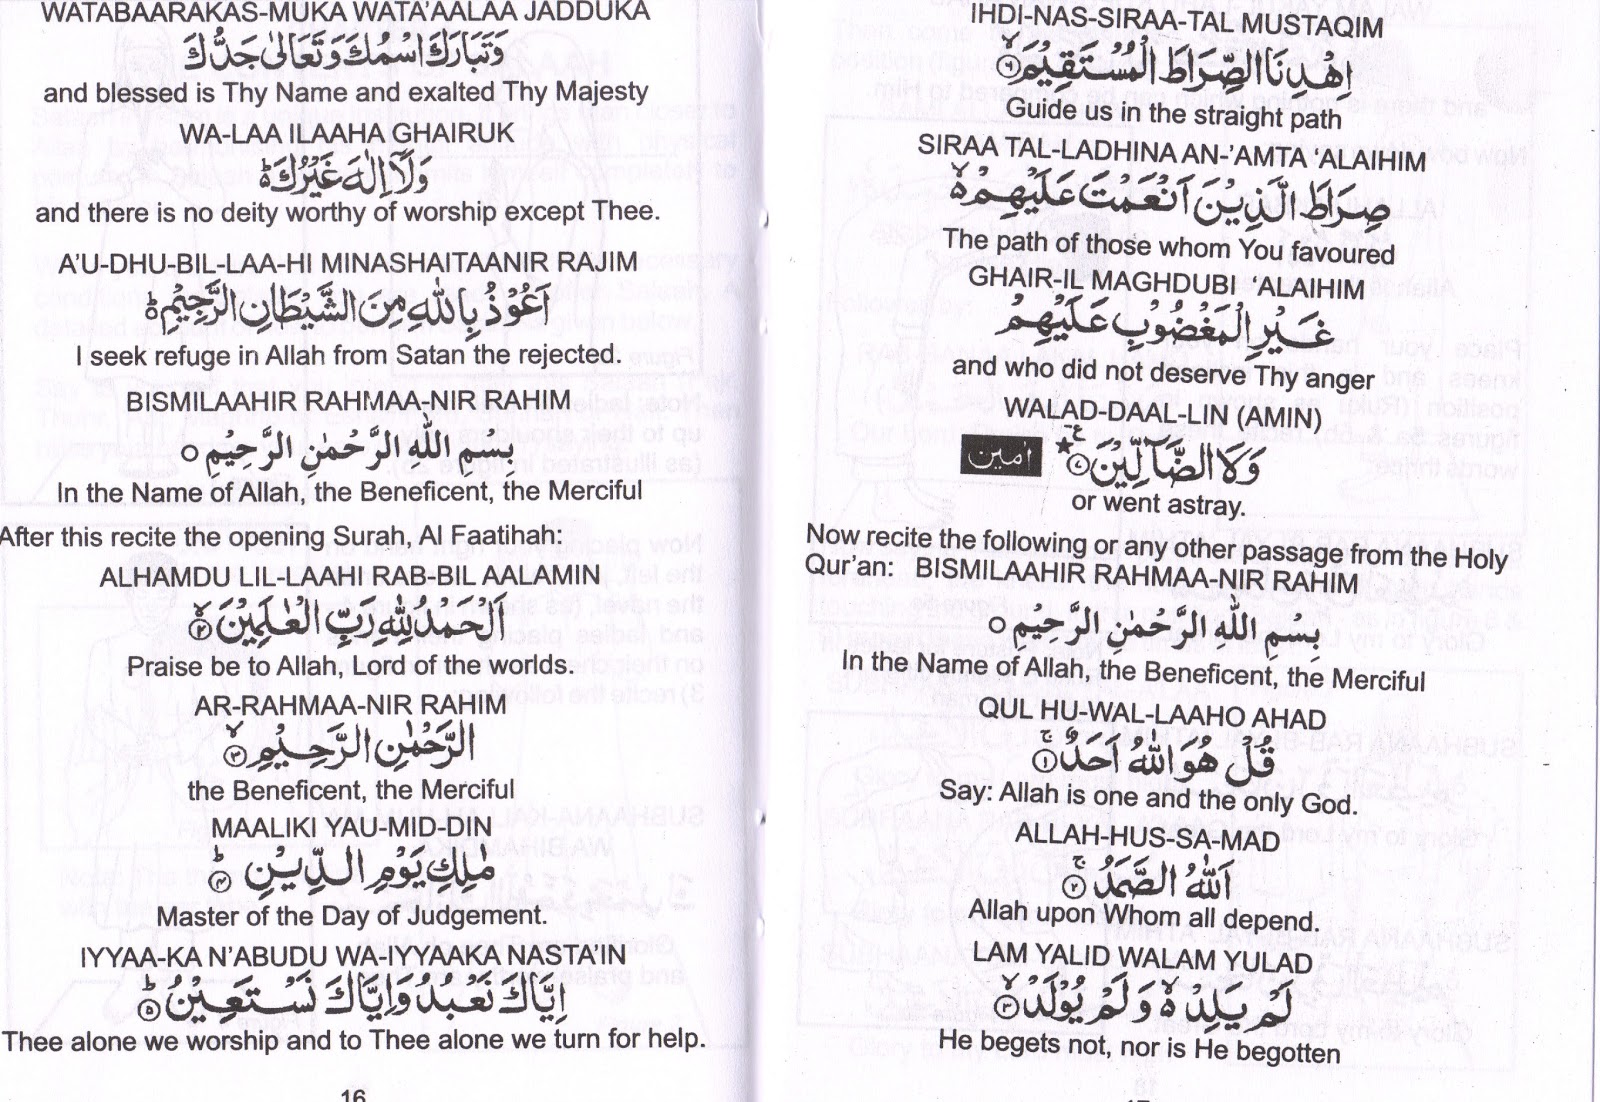 WATABAARAKAS-MUKA WATA'AALAA JADDUKA
وَتَبَارَكَ اسْمُكَ وَتَعَالٰى جَدُّكَ
and blessed is Thy Name and exalted Thy Majesty
WA-LAA ILAAHA GHAIRUK
وَلَآ اِلٰهَ غَيْرُكَ ؕ
and there is no deity worthy of worship except Thee.
A'U-DHU-BIL-LAA-HI MINASHAITAANIR RAJIM
اَعُوْذُ بِاللّٰهِ مِنَ الشَّيْطَانِ الرَّجِيْمِ ؕ
I seek refuge in Allah from Satan the rejected.
BISMILAAHIR RAHMAA-NIR RAHIM
بِسْمِ اللّٰهِ الرَّحْمٰنِ الرَّحِيْمِ ○
In the Name of Allah, the Beneficent, the Merciful
After this recite the opening Surah, Al Faatihah:
ALHAMDU LIL-LAAHI RAB-BIL AALAMIN
اَلْحَمْدُ لِلّٰهِ رَبِّ الْعٰلَمِيْنَ ۙ ۲
Praise be to Allah, Lord of the worlds.
AR-RAHMAA-NIR RAHIM
الرَّحْمٰنِ الرَّحِيْمِ ۙ ۳
the Beneficent, the Merciful
MAALIKI YAU-MID-DIN
مٰلِكِ يَوْمِ الدِّيْنِ ؕ ۴
Master of the Day of Judgement.
IYYAA-KA N'ABUDU WA-IYYAAKA NASTA'IN
اِيَّاكَ نَعْبُدُ وَاِيَّاكَ نَسْتَعِيْنُ ؕ ۵
Thee alone we worship and to Thee alone we turn for help.
16
IHDI-NAS-SIRAA-TAL MUSTAQIM
اِهْدِنَا الصِّرَاطَ الْمُسْتَقِيْمَ ۙ ۶
Guide us in the straight path
SIRAA TAL-LADHINA AN-'AMTA 'ALAIHIM
صِرَاطَ الَّذِيْنَ اَنْعَمْتَ عَلَيْهِمْ ۙ
The path of those whom You favoured
GHAIR-IL MAGHDUBI 'ALAIHIM
غَيْرِ الْمَغْضُوْبِ عَلَيْهِمْ
and who did not deserve Thy anger
WALAD-DAAL-LIN (AMIN)
وَلَا الضَّآلِّيْنَ ۷ اٰمين
or went astray.
Now recite the following or any other passage from the Holy
Qur'an: BISMILAAHIR RAHMAA-NIR RAHIM
بِسْمِ اللّٰهِ الرَّحْمٰنِ الرَّحِيْمِ ○
In the Name of Allah, the Beneficent, the Merciful
QUL HU-WAL-LAAHO AHAD
قُلْ هُوَ اللّٰهُ اَحَدٌ ۚ ۱
Say: Allah is one and the only God.
ALLAH-HUS-SA-MAD
اَللّٰهُ الصَّمَدُ ۚ ۲
Allah upon Whom all depend.
LAM YALID WALAM YULAD
لَمْ يَلِدْ ۙ وَلَمْ يُوْلَدْ ۙ ۳
He begets not, nor is He begotten